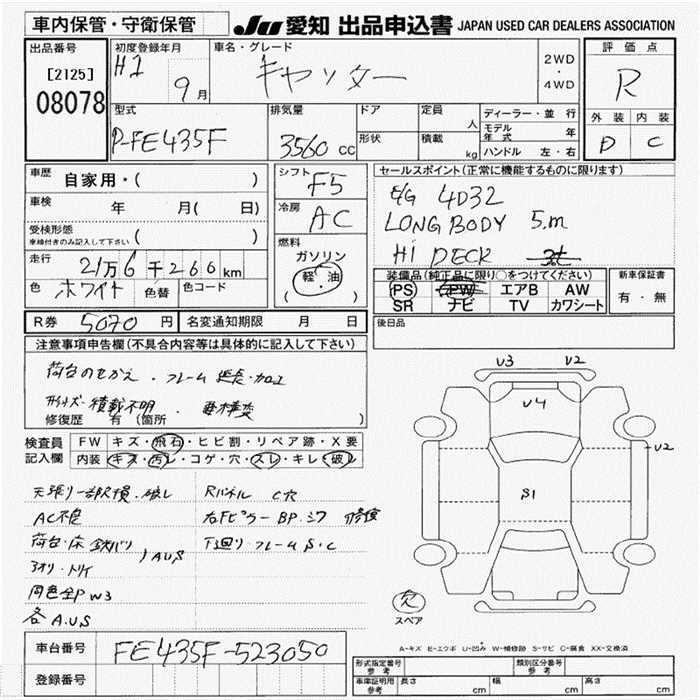 車内保管・守衛保管 JU 愛知 出品申込書 JAPAN USED CAR DEALERS ASSOCIATION
出品番号 初度登録年月 車名・グレード 評価点
[2125] H1 キャンター 2WD
08078 9月 ・4WD R
型式 排気量 ドア 定員 ディーラー・並行 外装 内装
P-FE435F 3560 cc 形状 積載 人 モデル年式 年 D C
kg ハンドル 左・右
車歴 自家用・( ) シフト F5 セールスポイント(正常に機能するものに限ります)
車検 年 月( 日) 冷房 AC E/G 4D32
受検形態 車検付きのみ記入して下さい ( ) LONG BODY 5.m
燃料 ガソリン Hi DECK
走行 21万6千266km (軽・油)
装備品(純正品に限り○をつけてください) 新車保証書
色 ホワイト 色替 色コード ( )
PS PW エアB AW 有・無
SR ナビ TV カワシート
R券 5070円 名変通知期限 月 日 後日品
注意事項申告欄(不具合内容等は具体的に記入して下さい)
荷台のせかえ・フレーム延長・加工
積載不明・要構変
修復歴 有(箇所 )
V3 V2
U4
V2
S1
検査員 FW キズ・飛石・ヒビ割・リペア跡・X要
記入欄 内装 キズ・汚レ・コゲ・穴・スレ・キレ・破レ
天張り一部欠損・破レ Rパネル C穴
AC不良 右Fピラー BP・シワ 修後
荷台・床 鉄バリ )AUS 下廻り・フレーム S・C
アオリ・トリイ
同色全P W3
各A.U.S
欠
スペア
A-キズ E-エクボ U-凹み W-補修跡 S-サビ C-腐食 XX-交換済
車台番号 FE435F-523050
登録番号
形式指定番号 参考 類別区分番号 参考
車庫証明用 参考 長さ cm 幅 cm 高さ cm